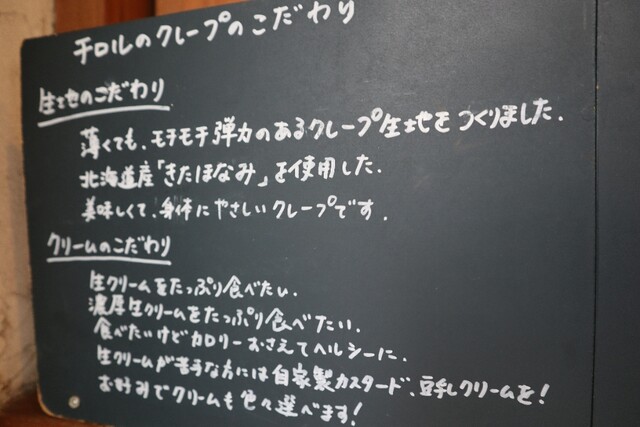 チロルのクレープのこだわり
生地のこだわり
薄くても、モチモチ弾力のあるクレープ生地をつくりました.
北海道産「きたほなみ」を使用した.
美味しくて、身体にやさしいクレープです.
クリームのこだわり
生クリームをたっぷり食べたい.
濃厚生クリームをたっぷり食べたい.
食べたいけどカロリーおさえてヘルシーに.
生クリームが苦手な方には自家製カスタード、豆乳クリームを!
お好みでクリームも色々選べます!